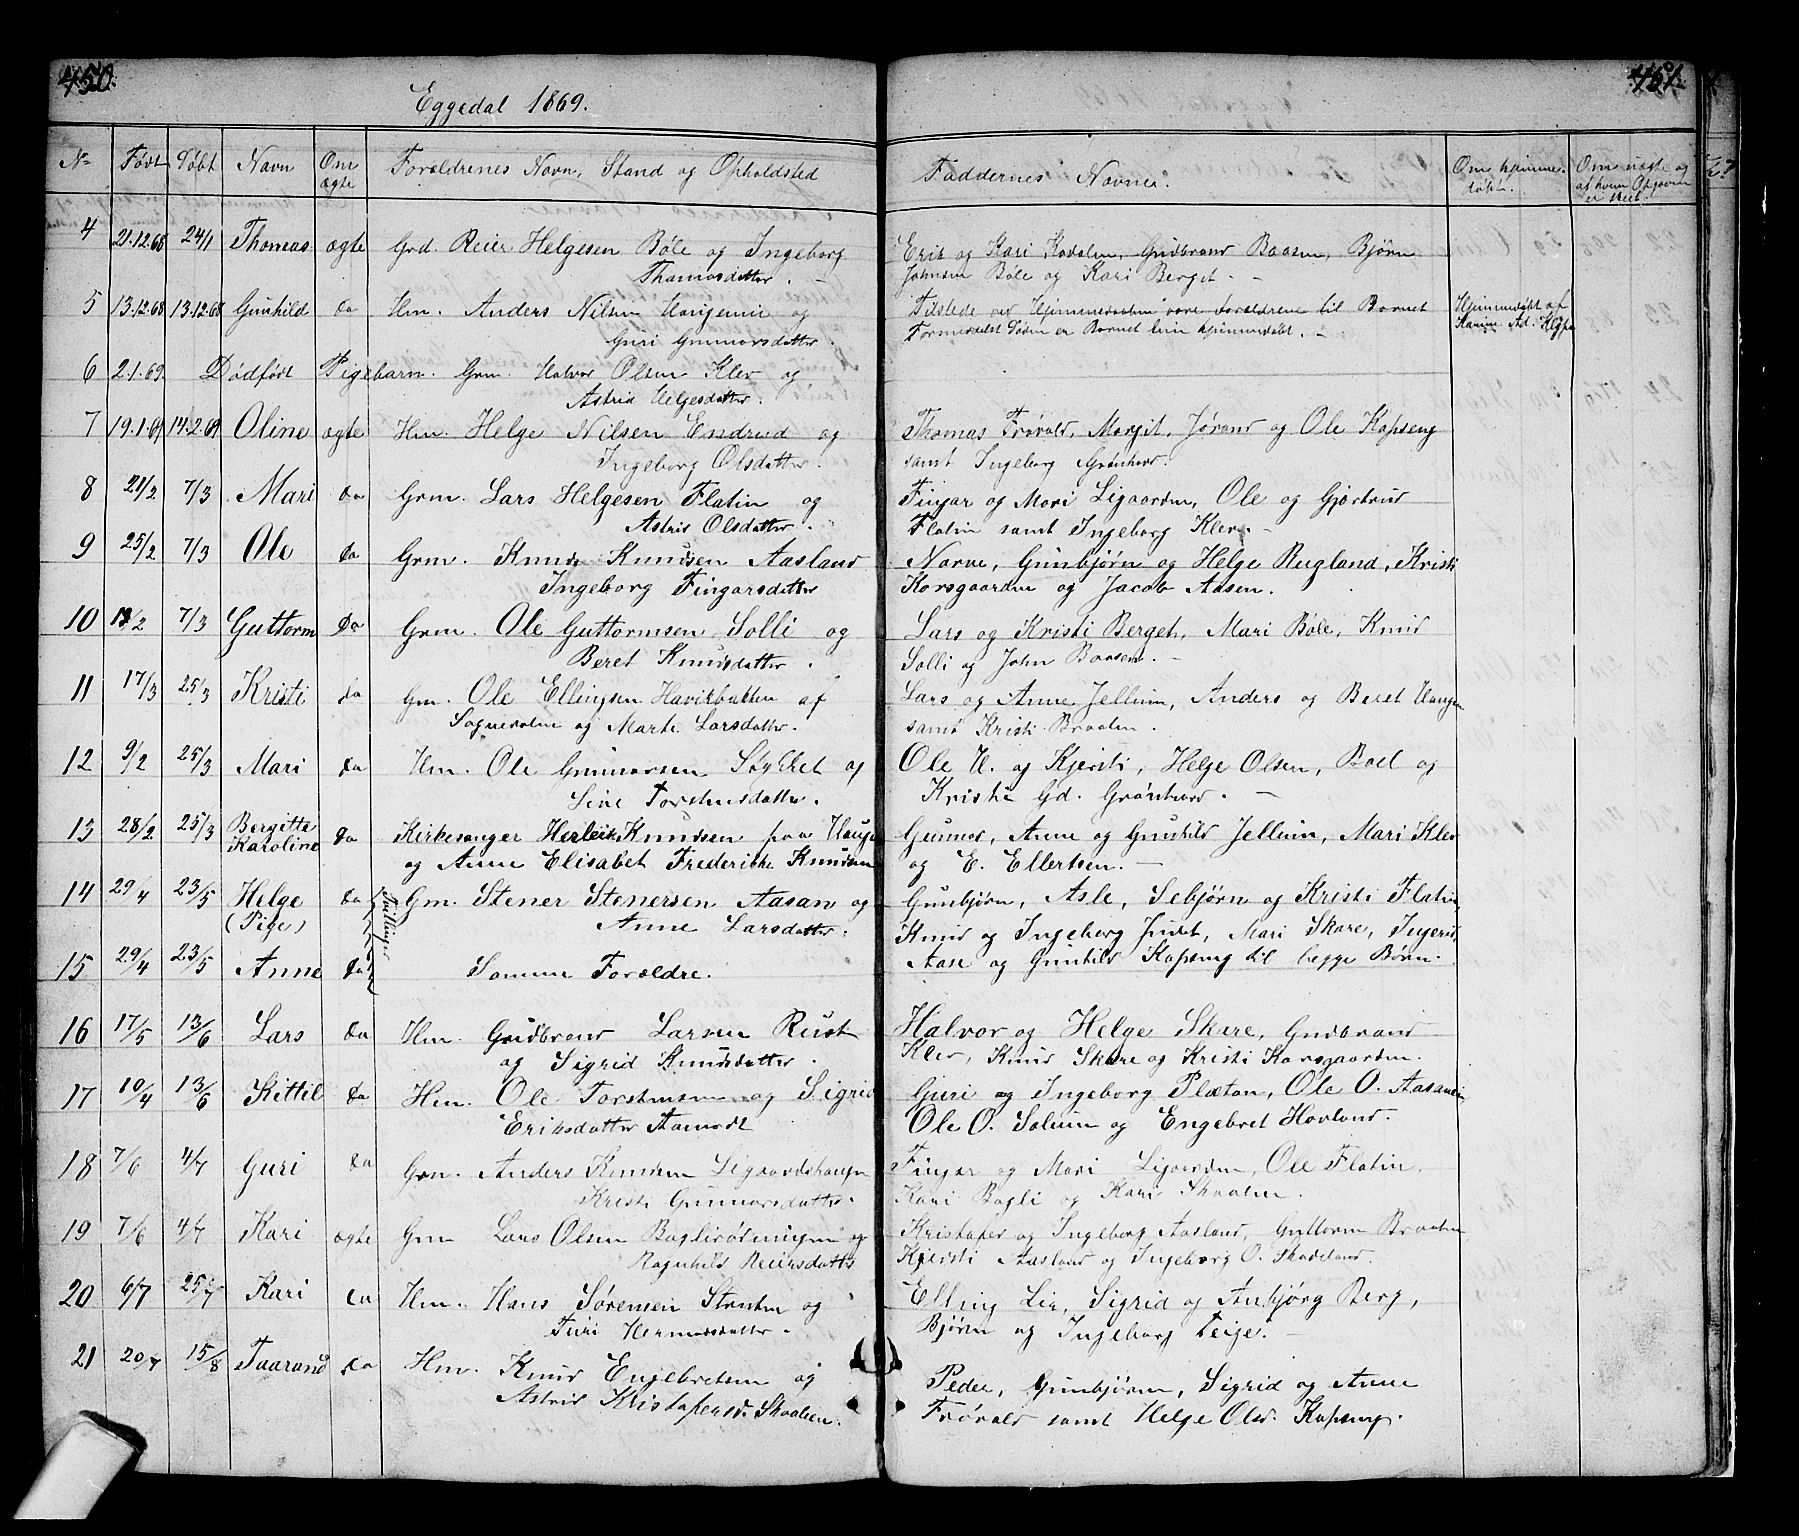 450.
Eggedal 1869.
No Født Døbt Navn Om ægte Forældrenes Navn, Stand og Opholdsted
4 21.12.68 24/1 Thomas ægte Grd. Reier Helgesen Bøle og Ingeborg
Thomasdatter.
5 13.12.68 13.12.68 Gunhild da Hm. Anders Nilsen og
Guri Gunnarsdatter.
6 2.1.69. Dødfødt Pigebarn. Grm. Halvor Olsen Klev og
Astrid Helgesdatter.
7 19.1.69 14.2.69 Oline ægte Hm. Helge Nilsen Endrud og
Ingeborg Olsdatter.
8 21/2 7/3 Mari da Grm. Lars Helgesen Flatin og
Astrid Olsdatter.
9 25/2 7/3 Ole da Grm. Knud Knudsen Aasland
Ingeborg Fingarsdatter
10 /2 7/3 Guttorm da Grm. Ole Guttormsen Solli og
Beret Knudsdatter.
11 17/3 25/3 Kristi da Gm. Ole Ellingsen af
og Marte Larsdatter.
12 9/2 25/3 Mari da Hm. Ole Gunnarsen Stykket og
Sine Torstensdatter.
13 28/2 25/3 Bergitte Karoline da Kirkesanger Herleik Knudsen paa Hauge
og Anne Elisabet Frederikke Knudsen
14 29/4 23/5 Helge da Tvillinger Gm. Stener Stenersen Aasan og
(Pige) Anne Larsdatter.
15 29/4 23/5 Anne da Samme Forældre.
16 17/5 13/6 Lars da Hm. Gudbrand Larsen Rust
og Sigrid Knudsdatter.
17 10/4 13/6 Kittil da Hm. Ole Torstensen og Sigrid
Eriksdatter Aamodt
18 7/6 4/7 Guri da Grm. Anders Knudsen Ligaardshaugen
Kristi Gunnarsdatter.
19 7/6 4/7 Kari ægte Gm Lars Olsen og
Ragnhild Reiersdatter
20 6/7 25/7 Kari da Hm. Hans Sørensen og
Turi Hermansdatter.
21 20/7 15/8 Taarand da Hm. Knud Engebretsen og
Astrid Kristofersd. Skaalen.
451.
Faddernes Navne. Om hjemmedøbt. Om uægte og af hvem Opgaven er skeet.
Erik og Kari Gudbrand Baasen, Bjørn
Johnsen Bøle og Kari Berget.
Tilstede ved Hjemmedaaben vare Forældrene til Barnet Hjemmedøbt af
er Barnet kun hjemmedøbt. Karine
Thomas Frøvold, Margit, Jørand og Ole Kapseng
samt Ingeborg Grønhovd.
Fingar og Mari Ligaarden, Ole og Gjertrud
Flatin samt Ingeborg Klev.
Narve, Gunbjørn og Helge Rugland, Kristi
Korsgaarden og Jacob Aasen.
Lars og Kristi Berget, Mari Bøle, Knud
Solli og John Baasen.
Lars og Anne Jellum, Anders og Beret Haugen
samt Kristi Braaten.
Ole H. og Kjersti, Helge Olsen, Boel og
Kristi Gd. Grønhovd.
Gunnar, Anne og Gunhild Jellum, Mari Klev
og E. Ellertsen.
Gunbjørn, Asle, Sebjørn og Kristi Flatin,
Knud og Ingeborg Juvet, Mari Skare, Ingerid,
Aase og Gunhild Kapseng til begge Børn.
Halvor og Helge Skare, Gudbrand
Klev, Knud Skare og Kristi Korsgaarden.
Guri og Ingeborg Plæten, Ole O.
Ole O. Solum og Engebret Hovland.
Fingar og Mari Ligaarden, Ole Flatin,
Kari Bagli og Kari Skaalen.
Kristofer og Ingeborg Aasland, Guttorm Braaten
Kjersti Aasland og Ingeborg O. Skadeland.
Elling Lie, Sigrid og Anbjørg Berg,
Bjørn og Ingeborg Teige.
Peder, Gunbjørn, Sigrid og Anne
Frøvold samt Helge Olsd. Kapseng.